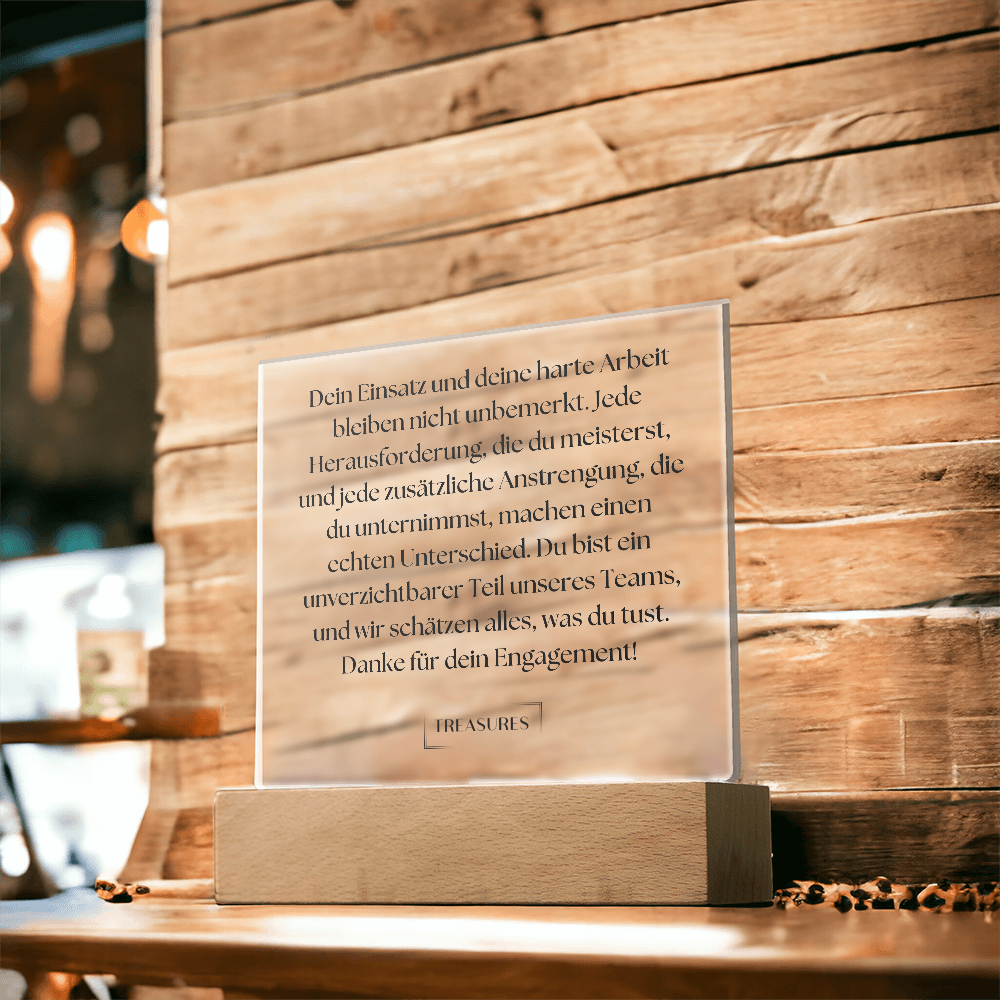 Dein Einsatz und deine harte Arbeit
bleiben nicht unbemerkt. Jede
Herausforderung, die du meisterst,
und jede zusätzliche Anstrengung, die
du unternimmst, machen einen
echten Unterschied. Du bist ein
unverzichtbarer Teil unseres Teams,
und wir schätzen alles, was du tust.
Danke für dein Engagement!
TREASURES